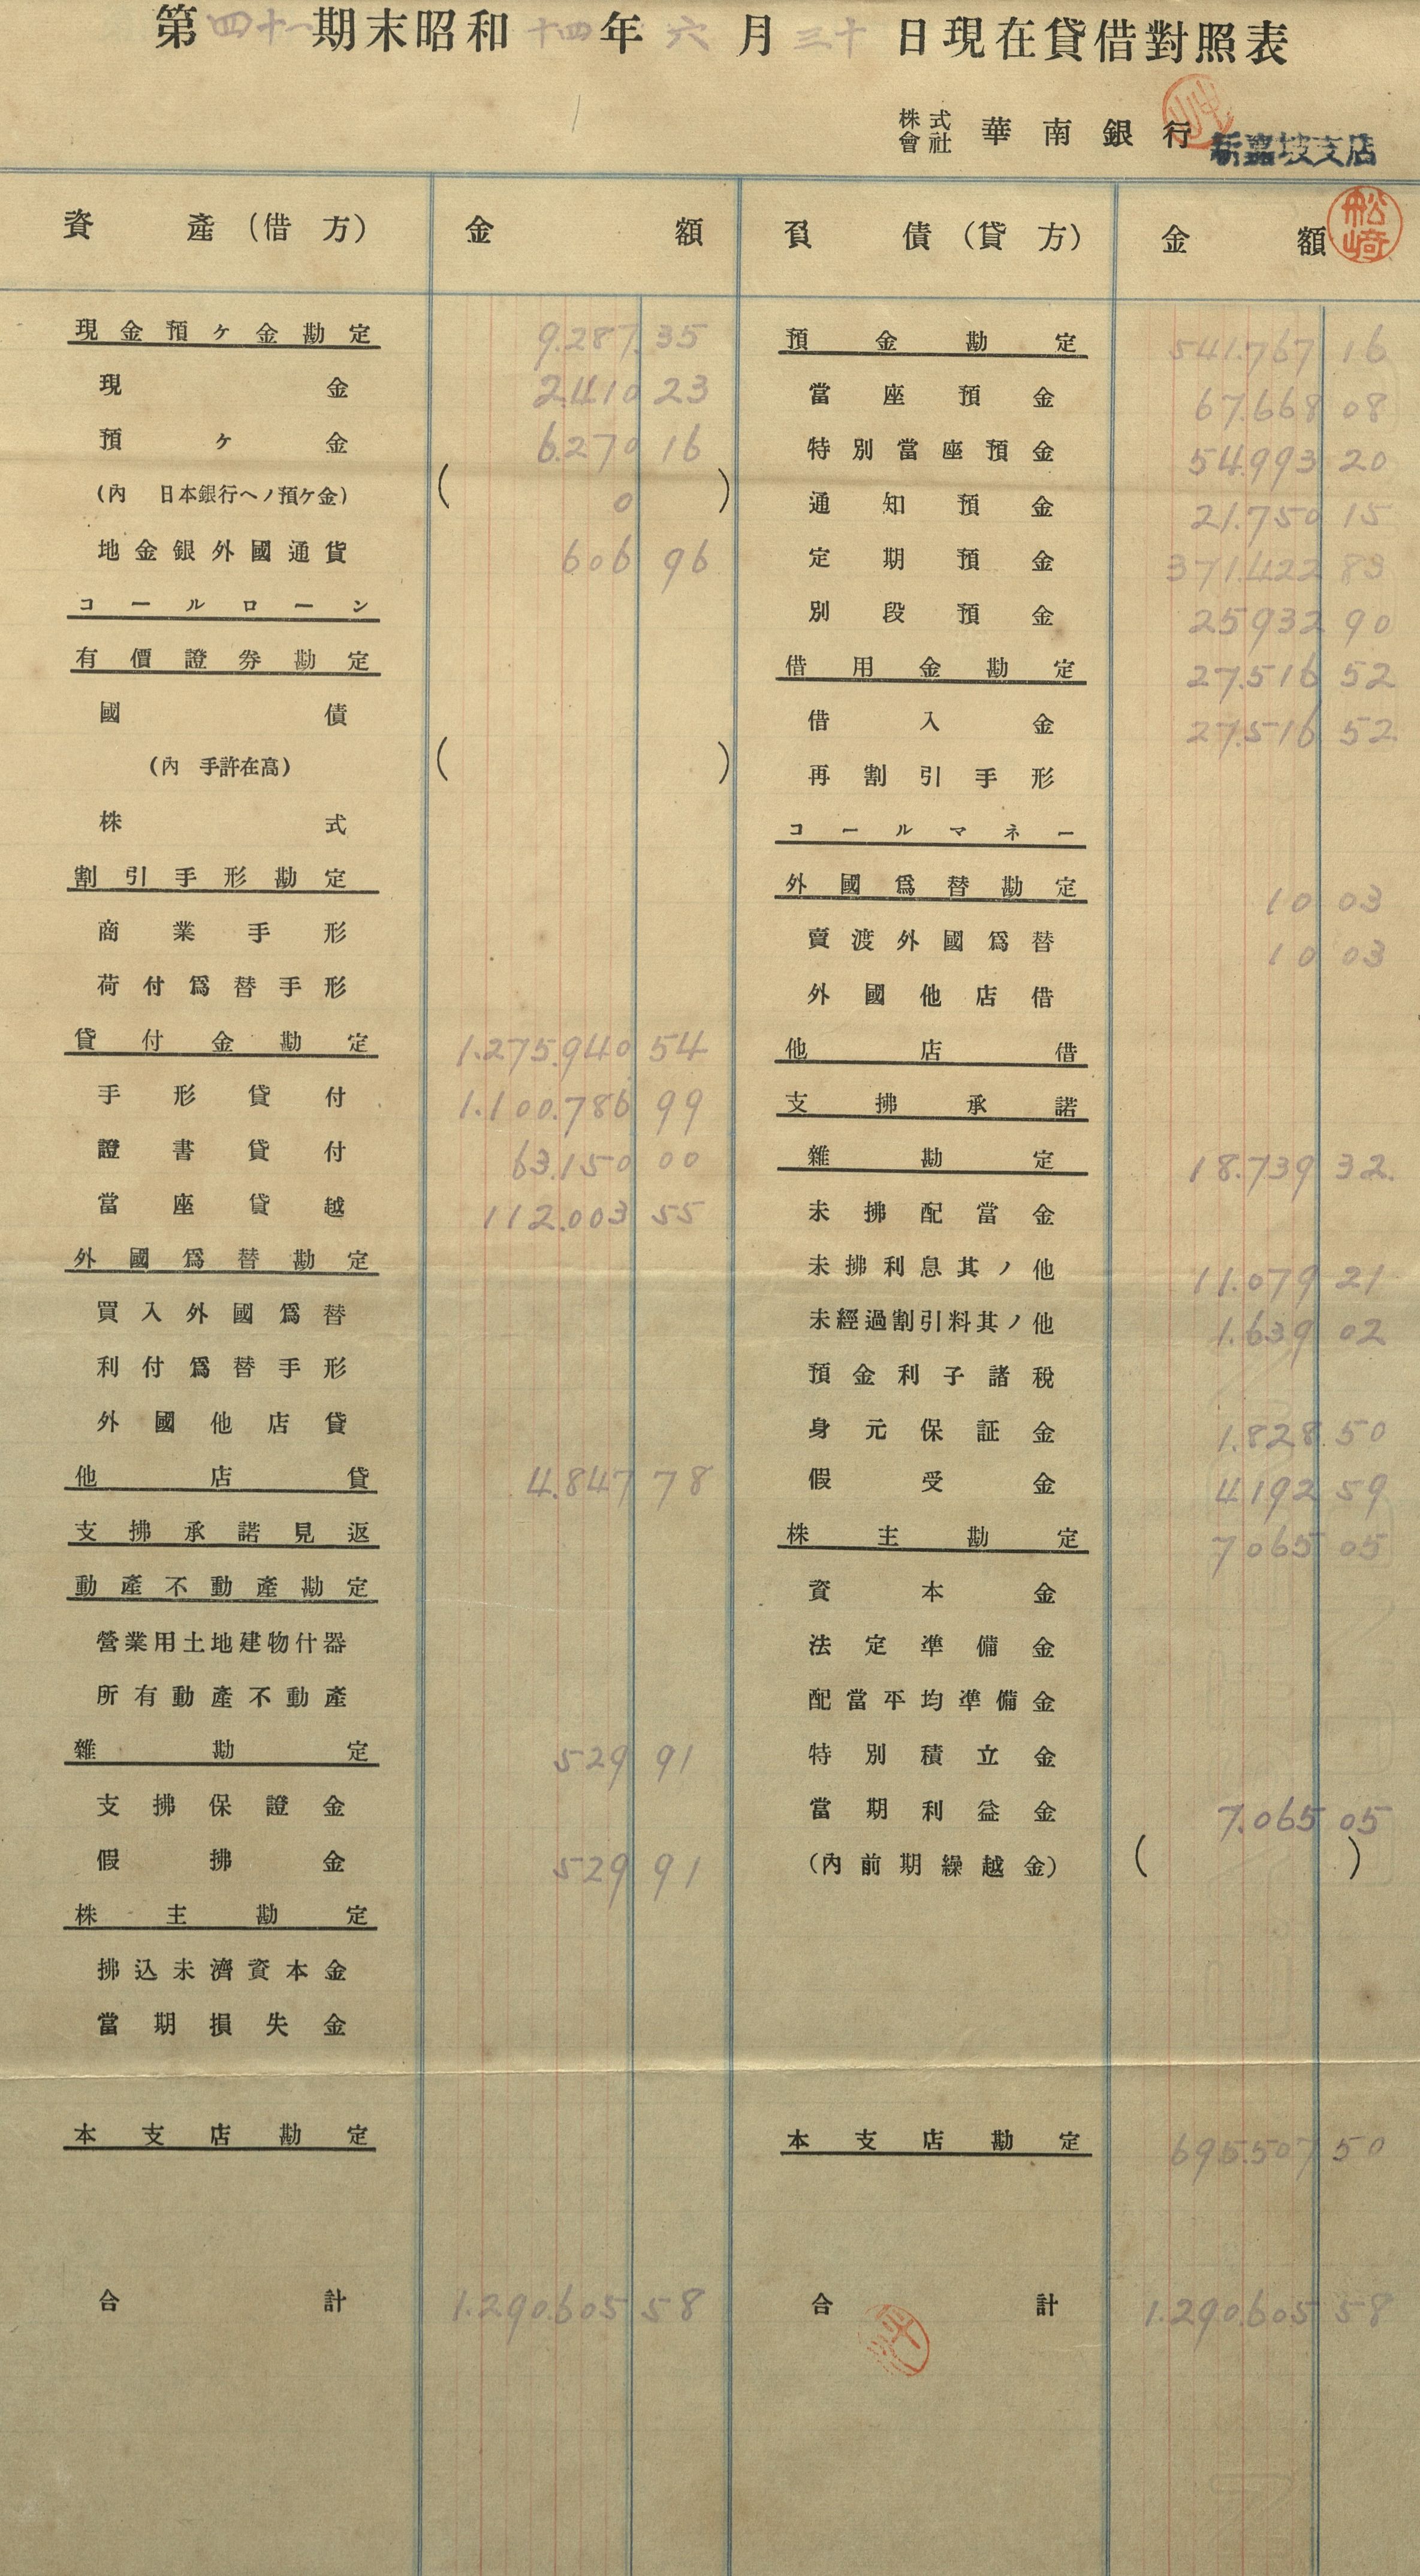 第四十一期末昭和十四年六月三十日現在貸借對照表
株式會社 華南銀行 新嘉坡支店
資產(借方) 金額 負債(貸方) 金額
松崎
現金預ケ金勘定 9.287.35
現金 2.410 23
預ケ金 6.270 16
(內 日本銀行ヘノ預ケ金) ( 0 )
地金銀外國通貨 606 96
コールローン
有價證券勘定
國債
(內 手許在高) ( )
株式
割引手形勘定
商業手形
荷付爲替手形
貸付金勘定 1.275.940 54
手形貸付 1.100.786 99
證書貸付 63.150 00
當座貸越 112.003 55
外國爲替勘定
買入外國爲替
利付爲替手形
外國他店貸
他店貸 4.847 78
支拂承諾見返
動產不動產勘定
營業用土地建物什器
所有動產不動產
雜勘定 529 91
支拂保證金
假拂金 529 91
株主勘定
拂込未濟資本金
當期損失金
本支店勘定
合計 1.290.605 58
預金勘定 541.767 16
當座預金 67.668 08
特別當座預金 54.993 20
通知預金 21.750 15
定期預金 371.422 83
別段預金 25932 90
借用金勘定 27.516 52
借入金 27.516 52
再割引手形
コールマネー
外國爲替勘定 10 03
賣渡外國爲替 10 03
外國他店借
他店借
支拂承諾
雜勘定 18.739 32
未拂配當金
未拂利息其ノ他 11.079 21
未經過割引料其ノ他 1.639 02
預金利子諸稅
身元保証金 1.828.50
假受金 4192 59
株主勘定 7065 05
資本金
法定準備金
配當平均準備金
特別積立金
當期利益金 7.065 05
(內前期繰越金) ( )
本支店勘定 695.507 50
合計 1.290.605 58